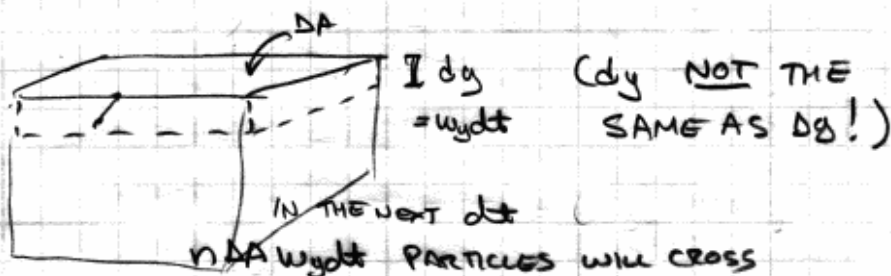 ΔA
I dy (dy NOT THE
= wydt SAME AS Δy!)
IN THE NEXT dt
nΔA wydt PARTICLES WILL CROSS